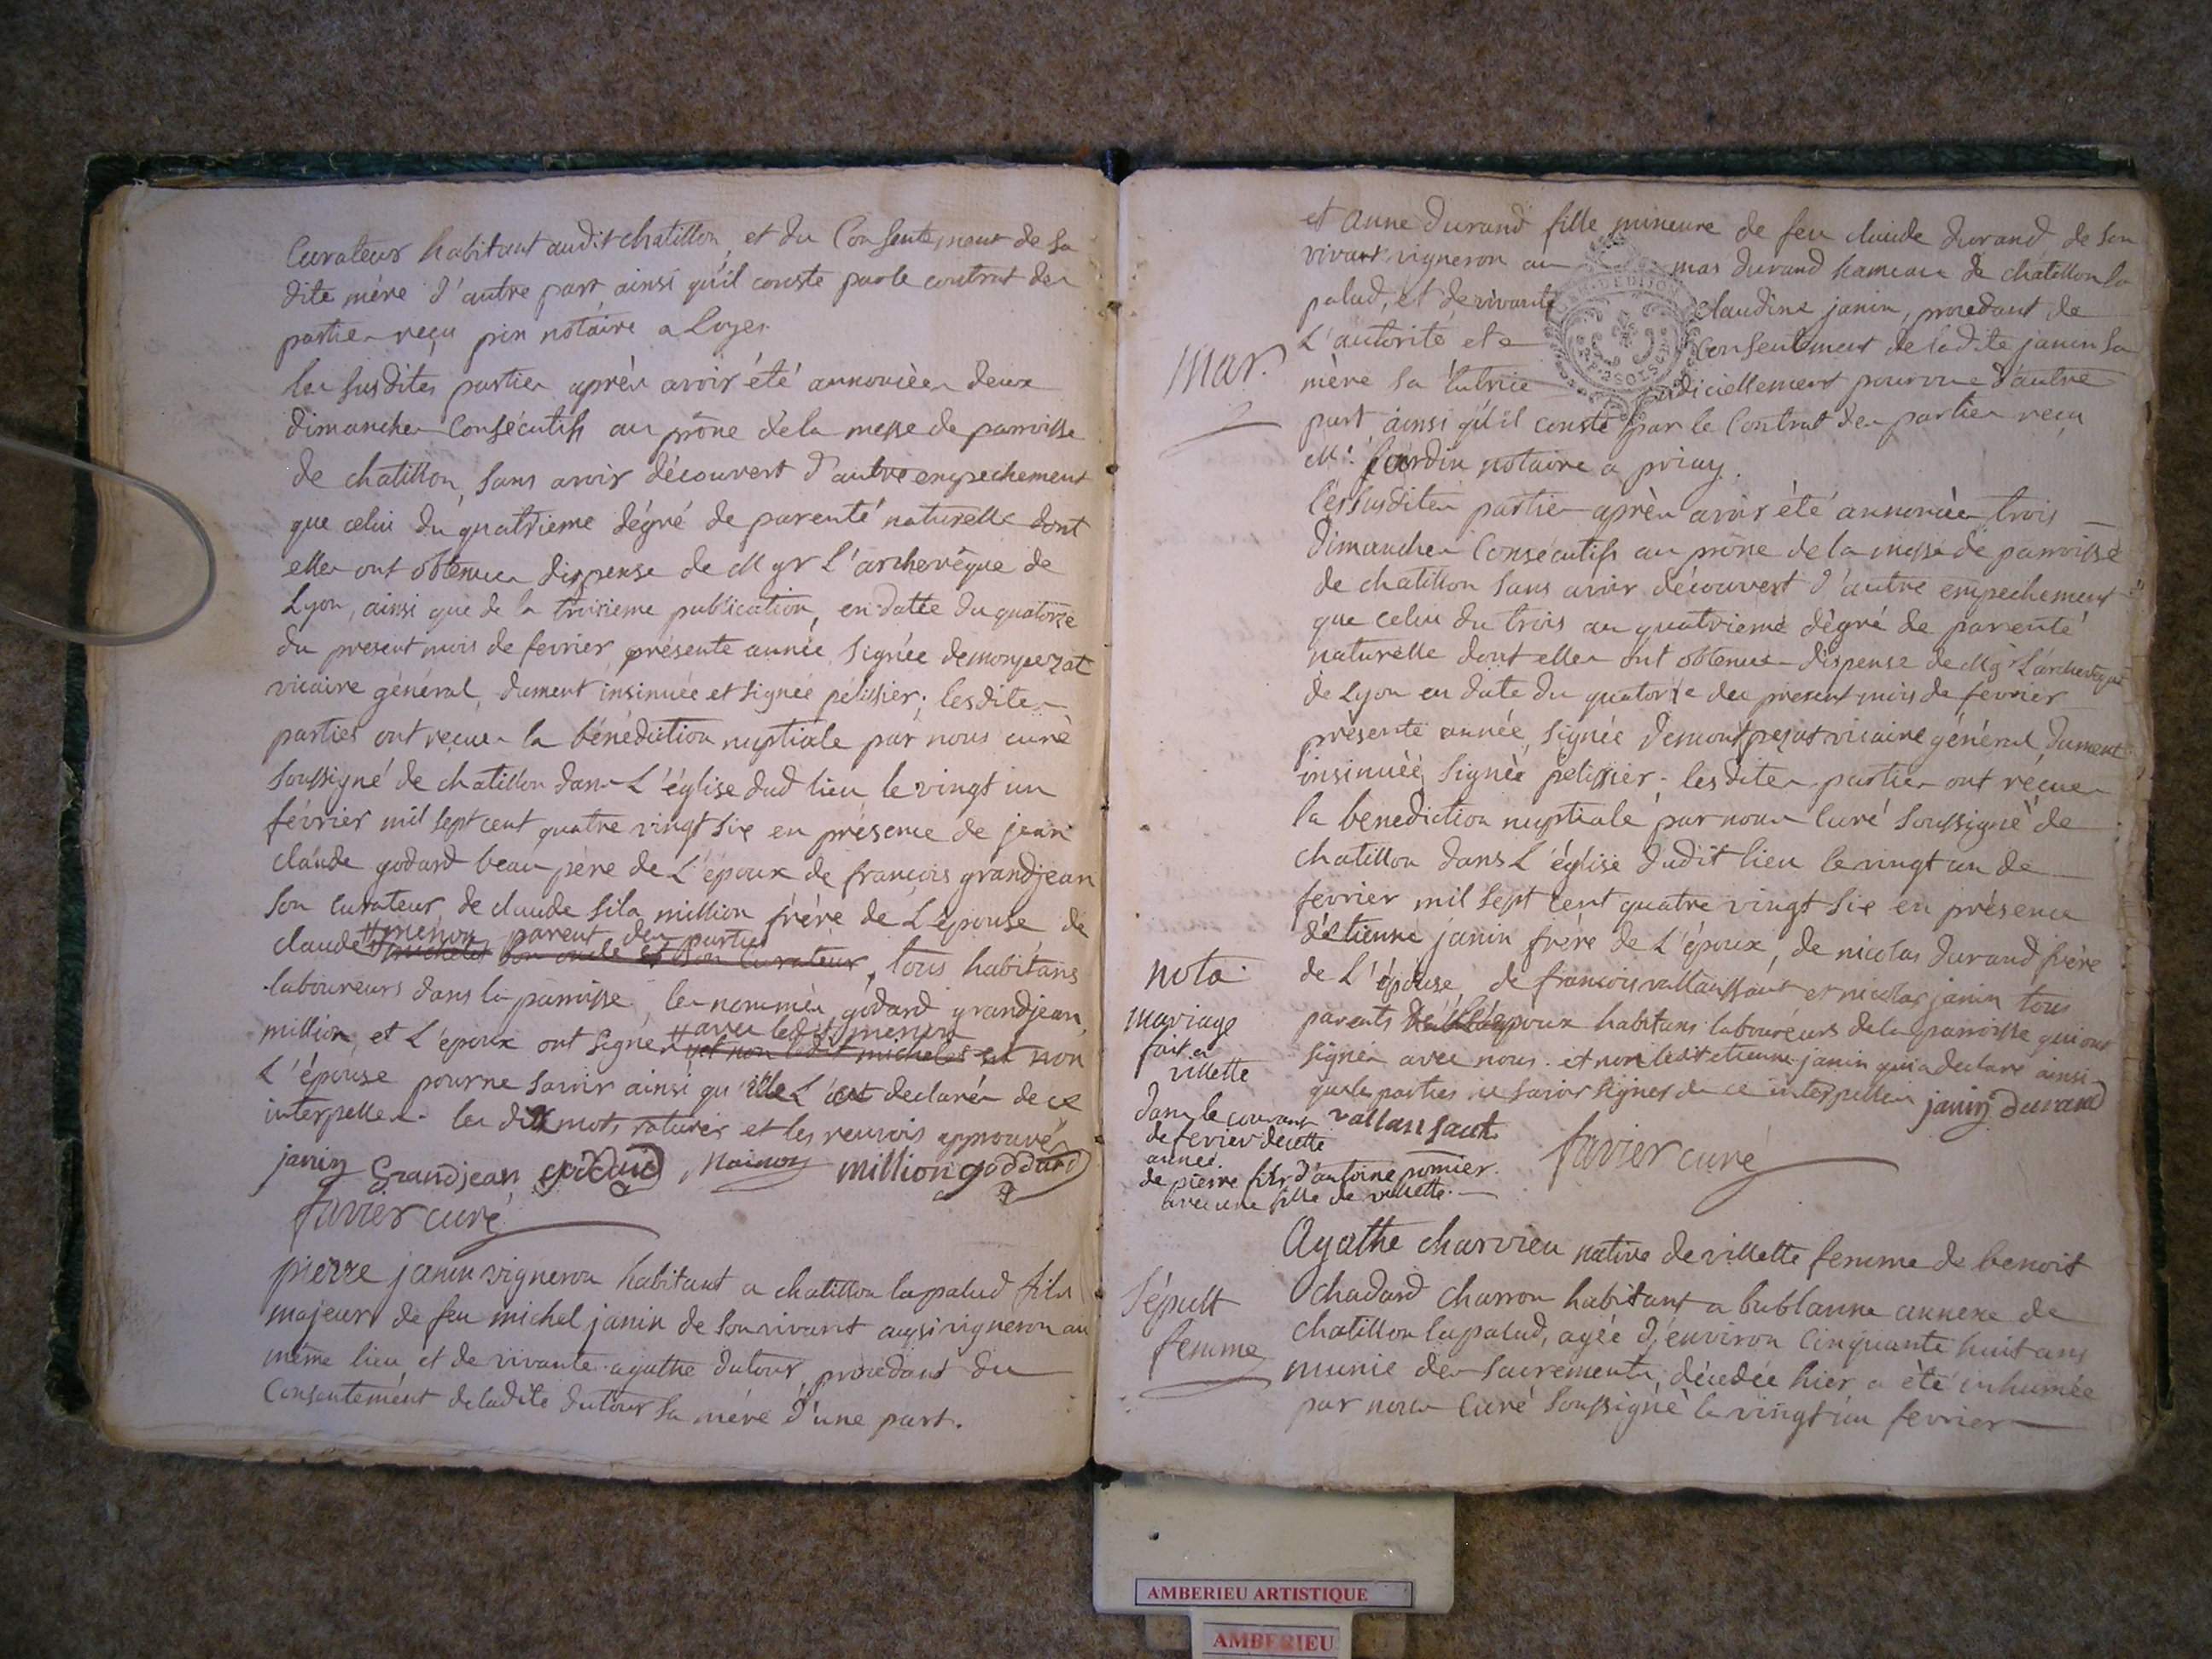 Curateur habitant audit chatillon, et du Consentement de sa
dite mère d'autre part ainsi qu'il conste par le contrat des
parties reçu prin notaire a Loyes.
les susdites parties après avoir été annoncées deux
dimanches Consécutifs au prône de la messe de parroisse
de chatillon, sans avoir découvert d'autre empechement
que celui du quatrieme dégré de parenté naturelle dont
elles ont obtenues dispense de Mgr L'archevêque de
Lyon, ainsi que de la troisieme publication, en datte du quatorze
du present mois de fevrier présente année, signée demonpezat
vicaire général, dument insinuée et signée pélissier; lesdites
parties ont reçues la bénédiction nuptiale par nous curé
soussigné de chatillon dans L'église dud lieu le vingt un
février mil sept cent quatre vingt six en présence de jean
claude godard beau père de L'époux de françois grandjean
son curateur, de claude fils million frère de L'epouse de
claude # menon parent des parties
michelet son oncle et son curateur, tous habitans
laboureurs dans la parroisse, les nommés godard grandjean,
million, et L'époux ont signé # avec ledit menon
et non ledit michelet et non
L'épouse pour ne savoir ainsi qu'elle L'a declaré de ce
interpellée. les dix mots raturés et les renvois approuvés
janin Grandjean godard, menon million goddard
favier curé
pierre janin vigneron habitant a chatillon la palud fils
majeur de feu michel janin de son vivant aussi vigneron au
même lieu et de vivante agathe dutour, procedant du
Consentement de ladite dutour sa mére d'une part.
et anne durand fille mineure de feu claude durand de son
vivant vigneron au mas durand hameau de châtillon la
palud, et de vivante claudine janin, procedant de
L'autorité et Consentement de ladite janin sa
Mar.
mère sa tutrice judiciellement pourvue d'autre
part ainsi qu'il conste par le Contrat des parties reçu
Me jardin notaire a priay.
les susdites parties après avoir été annoncées trois
dimanches Consécutifs au prône de la messe de parroisse
de chatillon sans avoir découvert d'autre empechement
que celui du trois au quatrieme dégré de parenté
naturelle dont elles ont obtenues dispense de Mgr L'archevêque
de Lyon en date du quatorze du present mois de fevrier
présente année, signée demontpezat vicaire général, dument
insinuée, signée pelissier. lesdites parties ont reçues
la benediction nuptiale par nous Curé soussigné de
chatillon dans L'église dudit lieu le vingt un de
fevrier mil sept cent quatre vingt six en présence
d'étienne janin frère de L'époux, de nicolas durand frère
de L'épouse, de francois vallanssaut et nicolas janin tous
parents de L'époux habitans laboureurs de la parroisse qui ont
signés avec nous. et non ledit etienne janin qui a declaré ainsi
que les parties ne savoir signer de ce interpellés janin Durand
vallansaut
favier curé
nota.
mariage
fait a
villette
dans le courant
de fevrier de cette
année.
de pierre fils d'antoine pomier.
avec une fille de villette.
Sépult
femme
Agathe charvieu native de villette femme de benoit
chadard charron habitant a bublanne annexe de
chatillon la palud, agée d'environ Cinquante huit ans
munie des sacrements, décedée hier, a été inhumée
par nous Curé soussigné le vingt un fevrier
AMBERIEU ARTISTIQUE
AMBERIEU